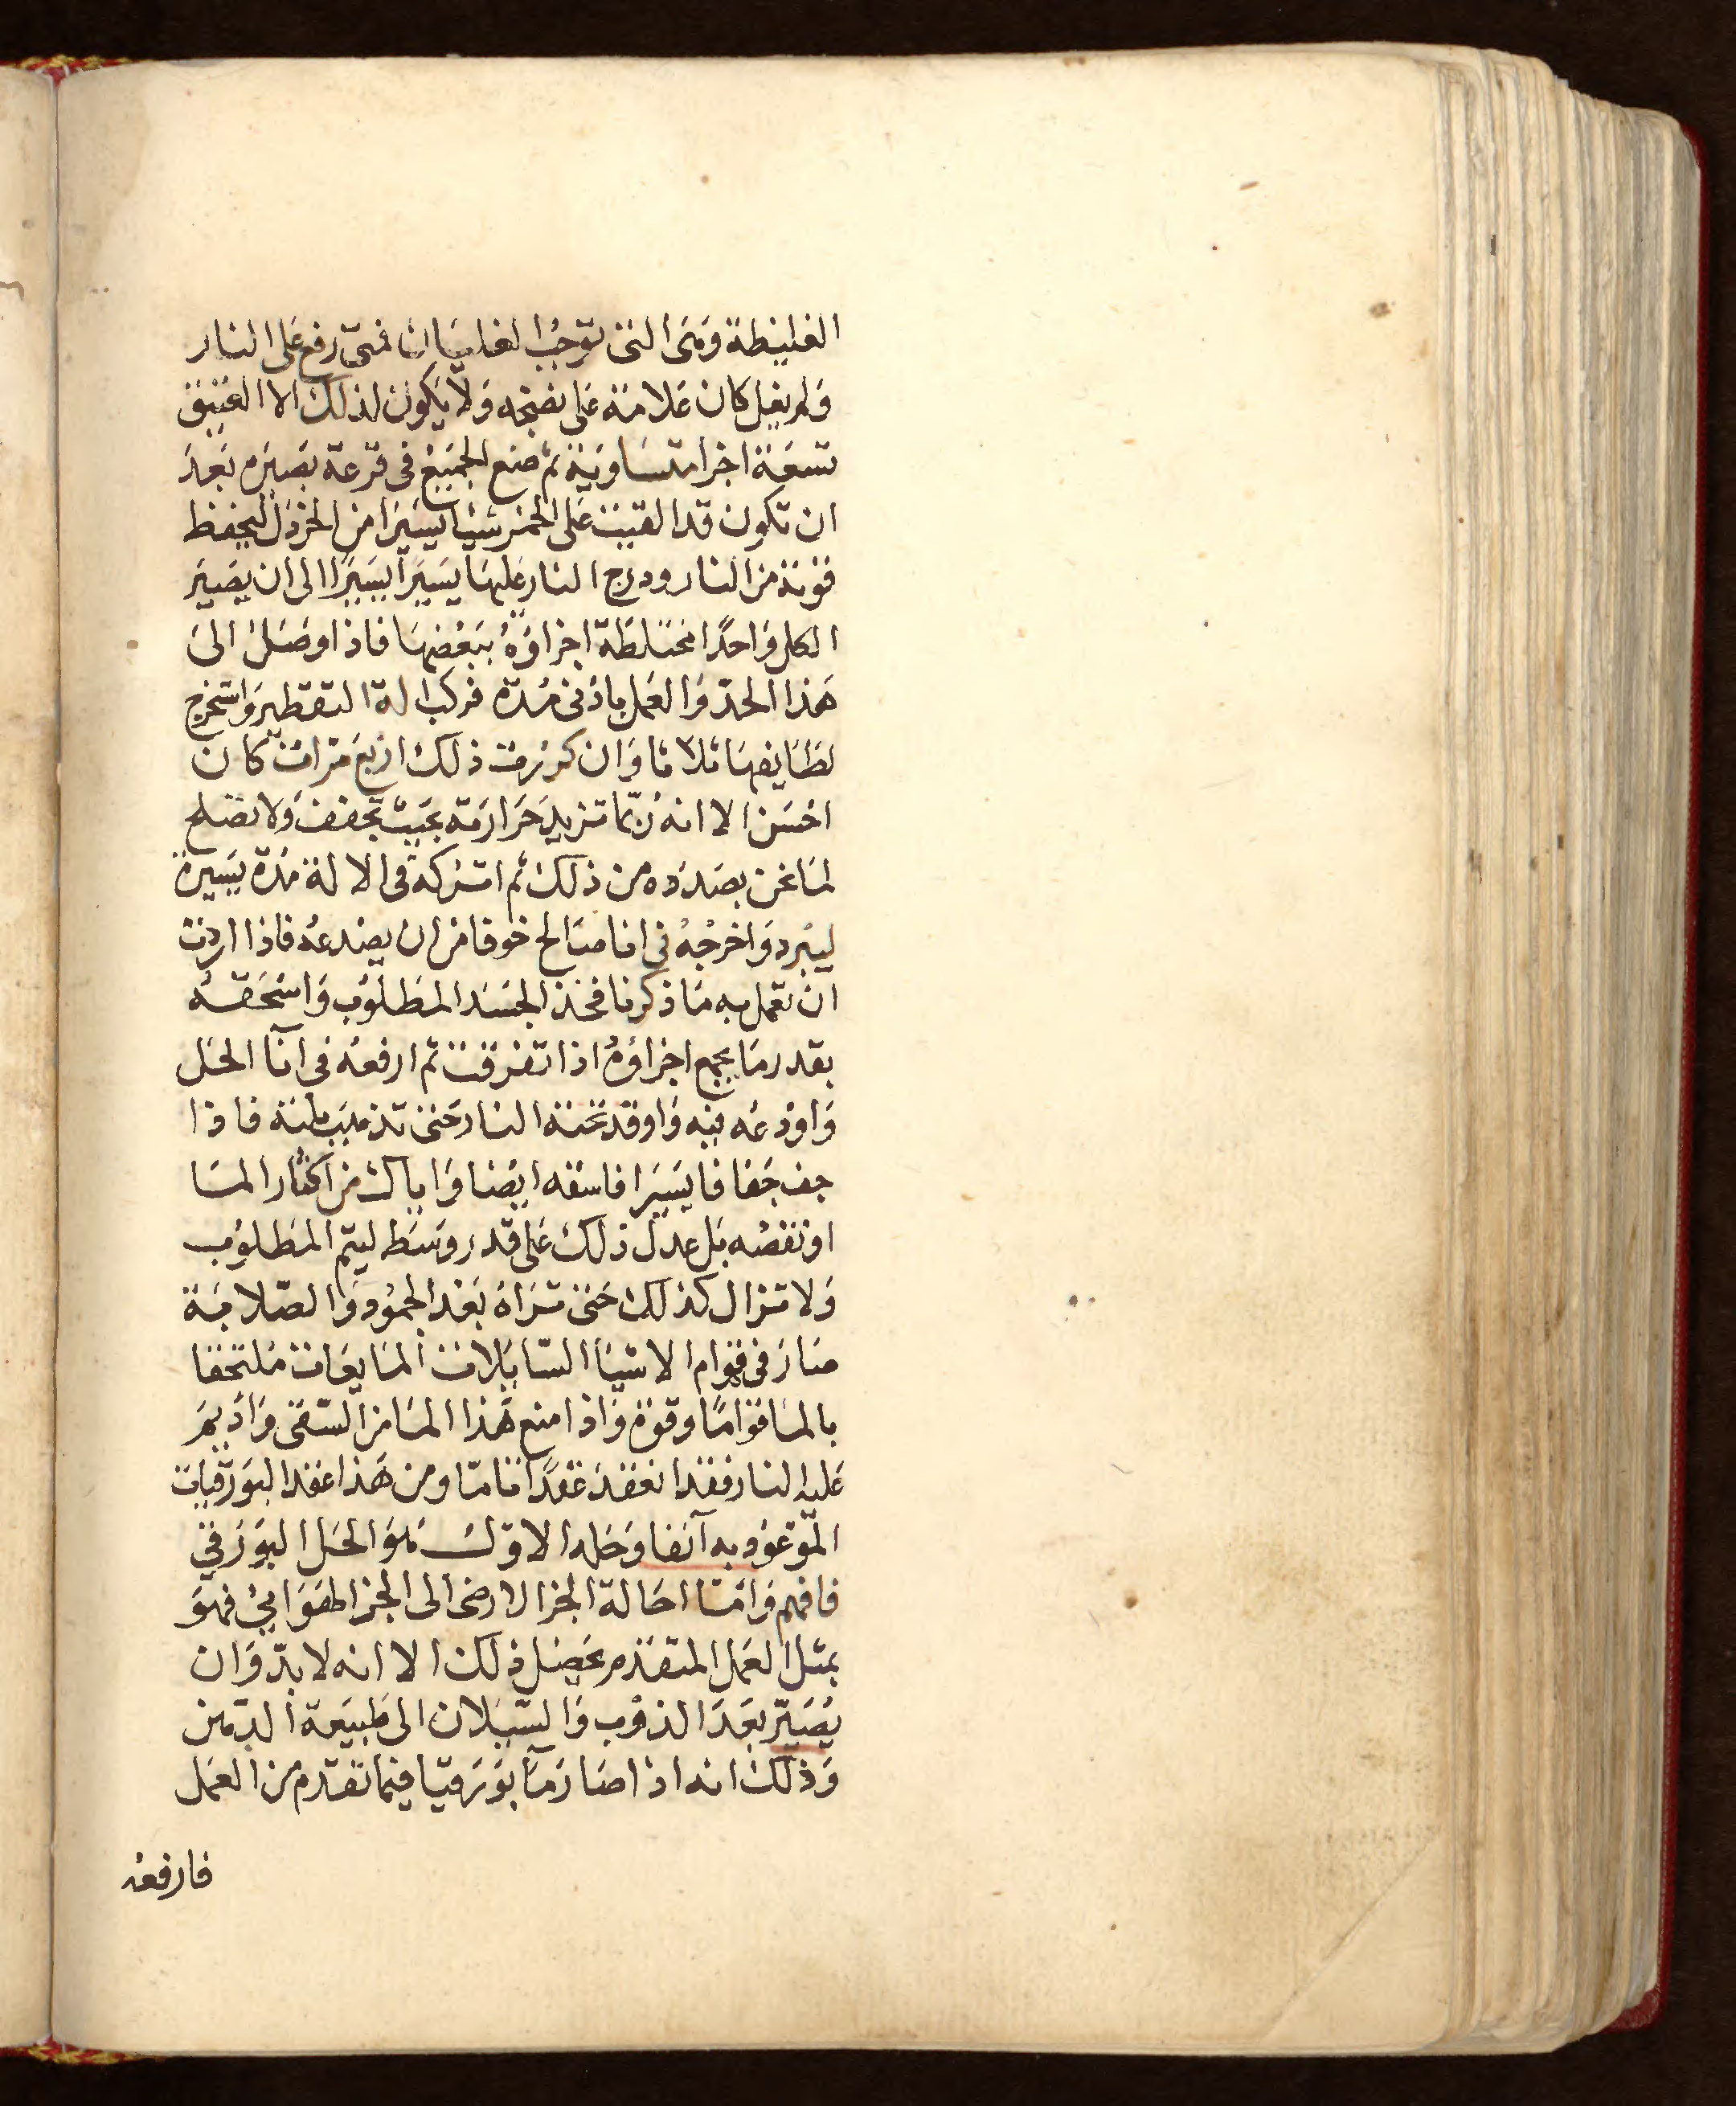 الغليظة وَهَى التى توجبُ الغليَان فمتى رفع عَلى النار
وَلم يغل كان عَلامَة عَلى نضجه وَلا يَكون لذلك الا العَتيق
تسعَة اجزا متسَاويَة ثم ضع الجميَع فى قرعة بصيَرة بَعدَ
ان تكون قد القيت عَلى الخمر شيئا يسَيَرا من الخردَل ليحفظ
قوته من النار ودرج النار عَليهَا يَسَيَرا يسَيَرا الى ان يصَيَر
الكل وَاحدًا مختلطَة اجزاؤهُ ببَعْضهَا فاذا وصَلْ الىَ
هَذا الحدّ وَالعَمل بادْنى مُدّة فركب الة التقطير وَاستخرج
لطَايفهَا ثلاثا وَان كررت ذلك اربع مَرات كان
احْسَن الا انه ربّما تزيد حَرارته بحَيث تجفف وَلا تصْلح
لمَا نحن بصَدَده من ذلك ثم اتركه فى الالة مُدّة يسَيرة
ليبْرد وَاخرجْهُ فى انا صَالح خوفا من ان يصْدعهُ فاذا اردت
ان تعمل به مَا ذكرنا فخذ الجسَد المطَلوب وَاسْحَقهُ
بقدر مَا يجمع اجزاؤهُ اذا تفرقت ثم ارفعه فى آنا الحَل
وَاودعْه فيه وَاوقد تحته النار حَتى تذهب بلته فاذا
جف جَفافا يسَيَرا فاسْقه ايضا وَاياك من اكثار المَا
او نقصْه بَل عدل ذلك عَلى قدر وسَط ليتم المطَلوب
وَلا تزال كذلك حَتى تَراهُ بَعْد الجمُود وَالصّلابَة
صَارَ فى قوام الاشيَا السّايَلات المَايعَات مُلتحقا
بالمَا قوَامًا وقوة وَاذا منع هَذا المَا من السّقى وَاديمَ
عَليه النار فقد انعقدَ عقدًا تامّا ومن هَذا عقد البوَرقيات
المَوعُود به آنفا وَحله الاوّل هوَ الحَل البوَرَقي
فافهم وَامّا احَالة الجزا الارضى الى الجزا الهَوَايى فهوَ
بمثل العَمل المتقدم يحصَل ذلك الا انه لا بدّ وَان
يُصَيّر بَعَدَ الذوْب وَالسّيَلان الى طَبيعَة الدّهن
وَذلك انه اذا صَارَ مَآ بوَرَقيّا فيمَا تقدم من العَمَل
فارفعهُ